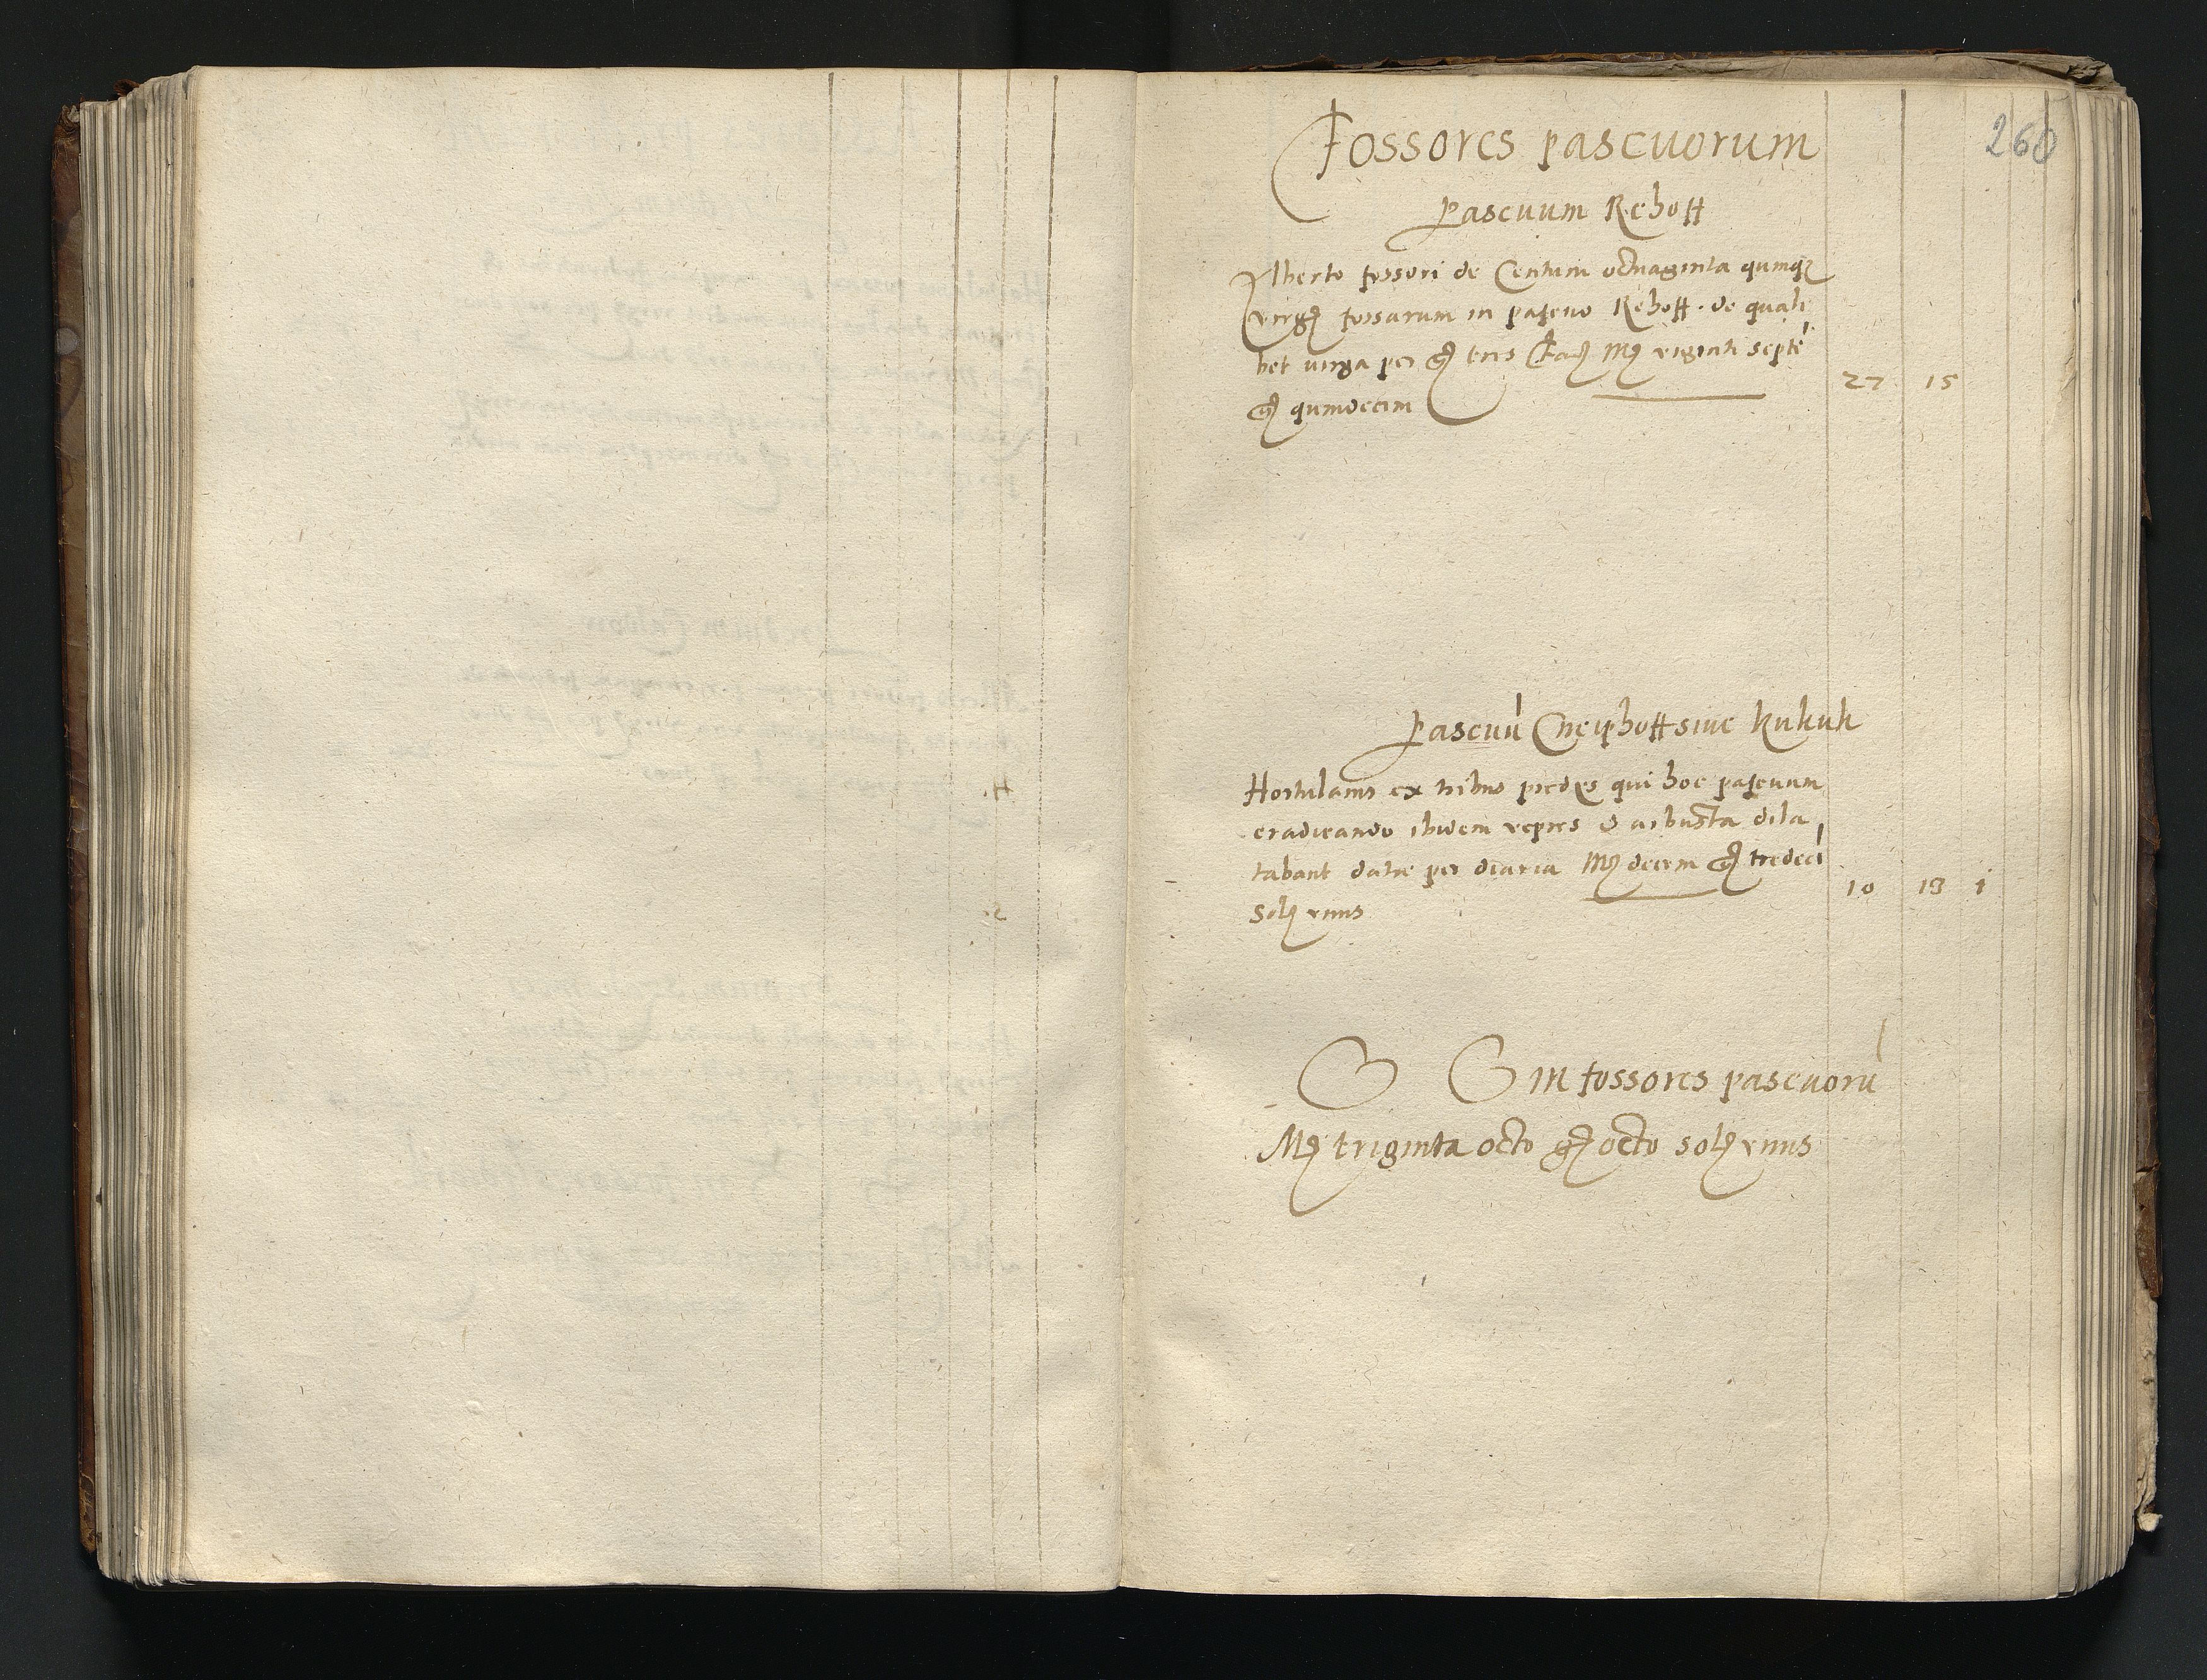 260
Fossores pascuorum
Pascuum Rehoff
Alberto fossori de Centum octuaginta quinqz
virg fossarum in pascuo Rehoff. de quali
bet virga per g tres Fac Mg viginti septē
g quindecim 27 15
Pascuū Cneiphoff sive Kukuk
Hortulanis ex tribus prediis qui hoc pascuum
eradicando ibidem vepres & arbusta dila
tabant date per diaria Mg decem g tredecī
Sol vnus 10 13 i
in fossores pascuorū
Mg triginta octo g octo sol vnus